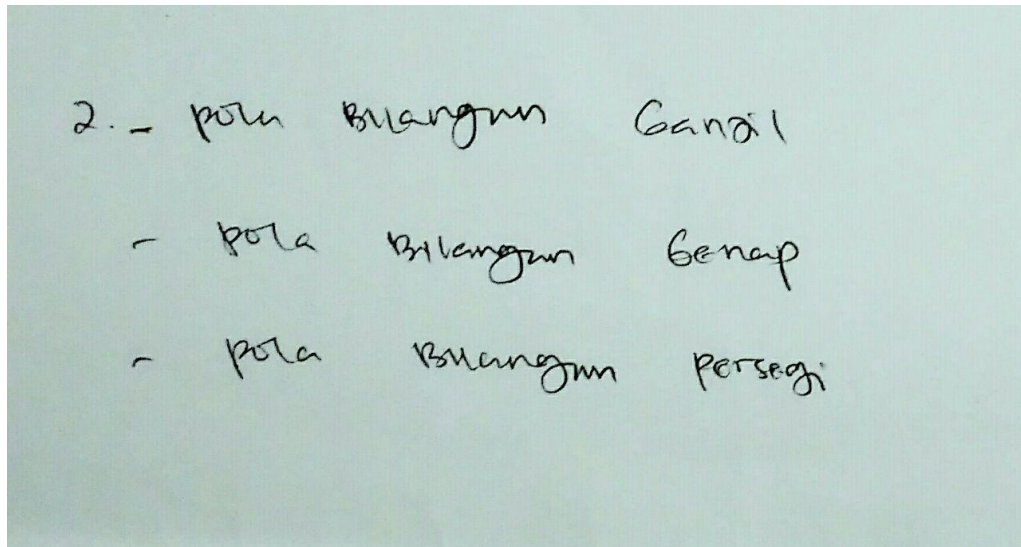 2. - pola Bilangan Ganzil
- pola Bilangan Genap
- pola Bilangan persegi